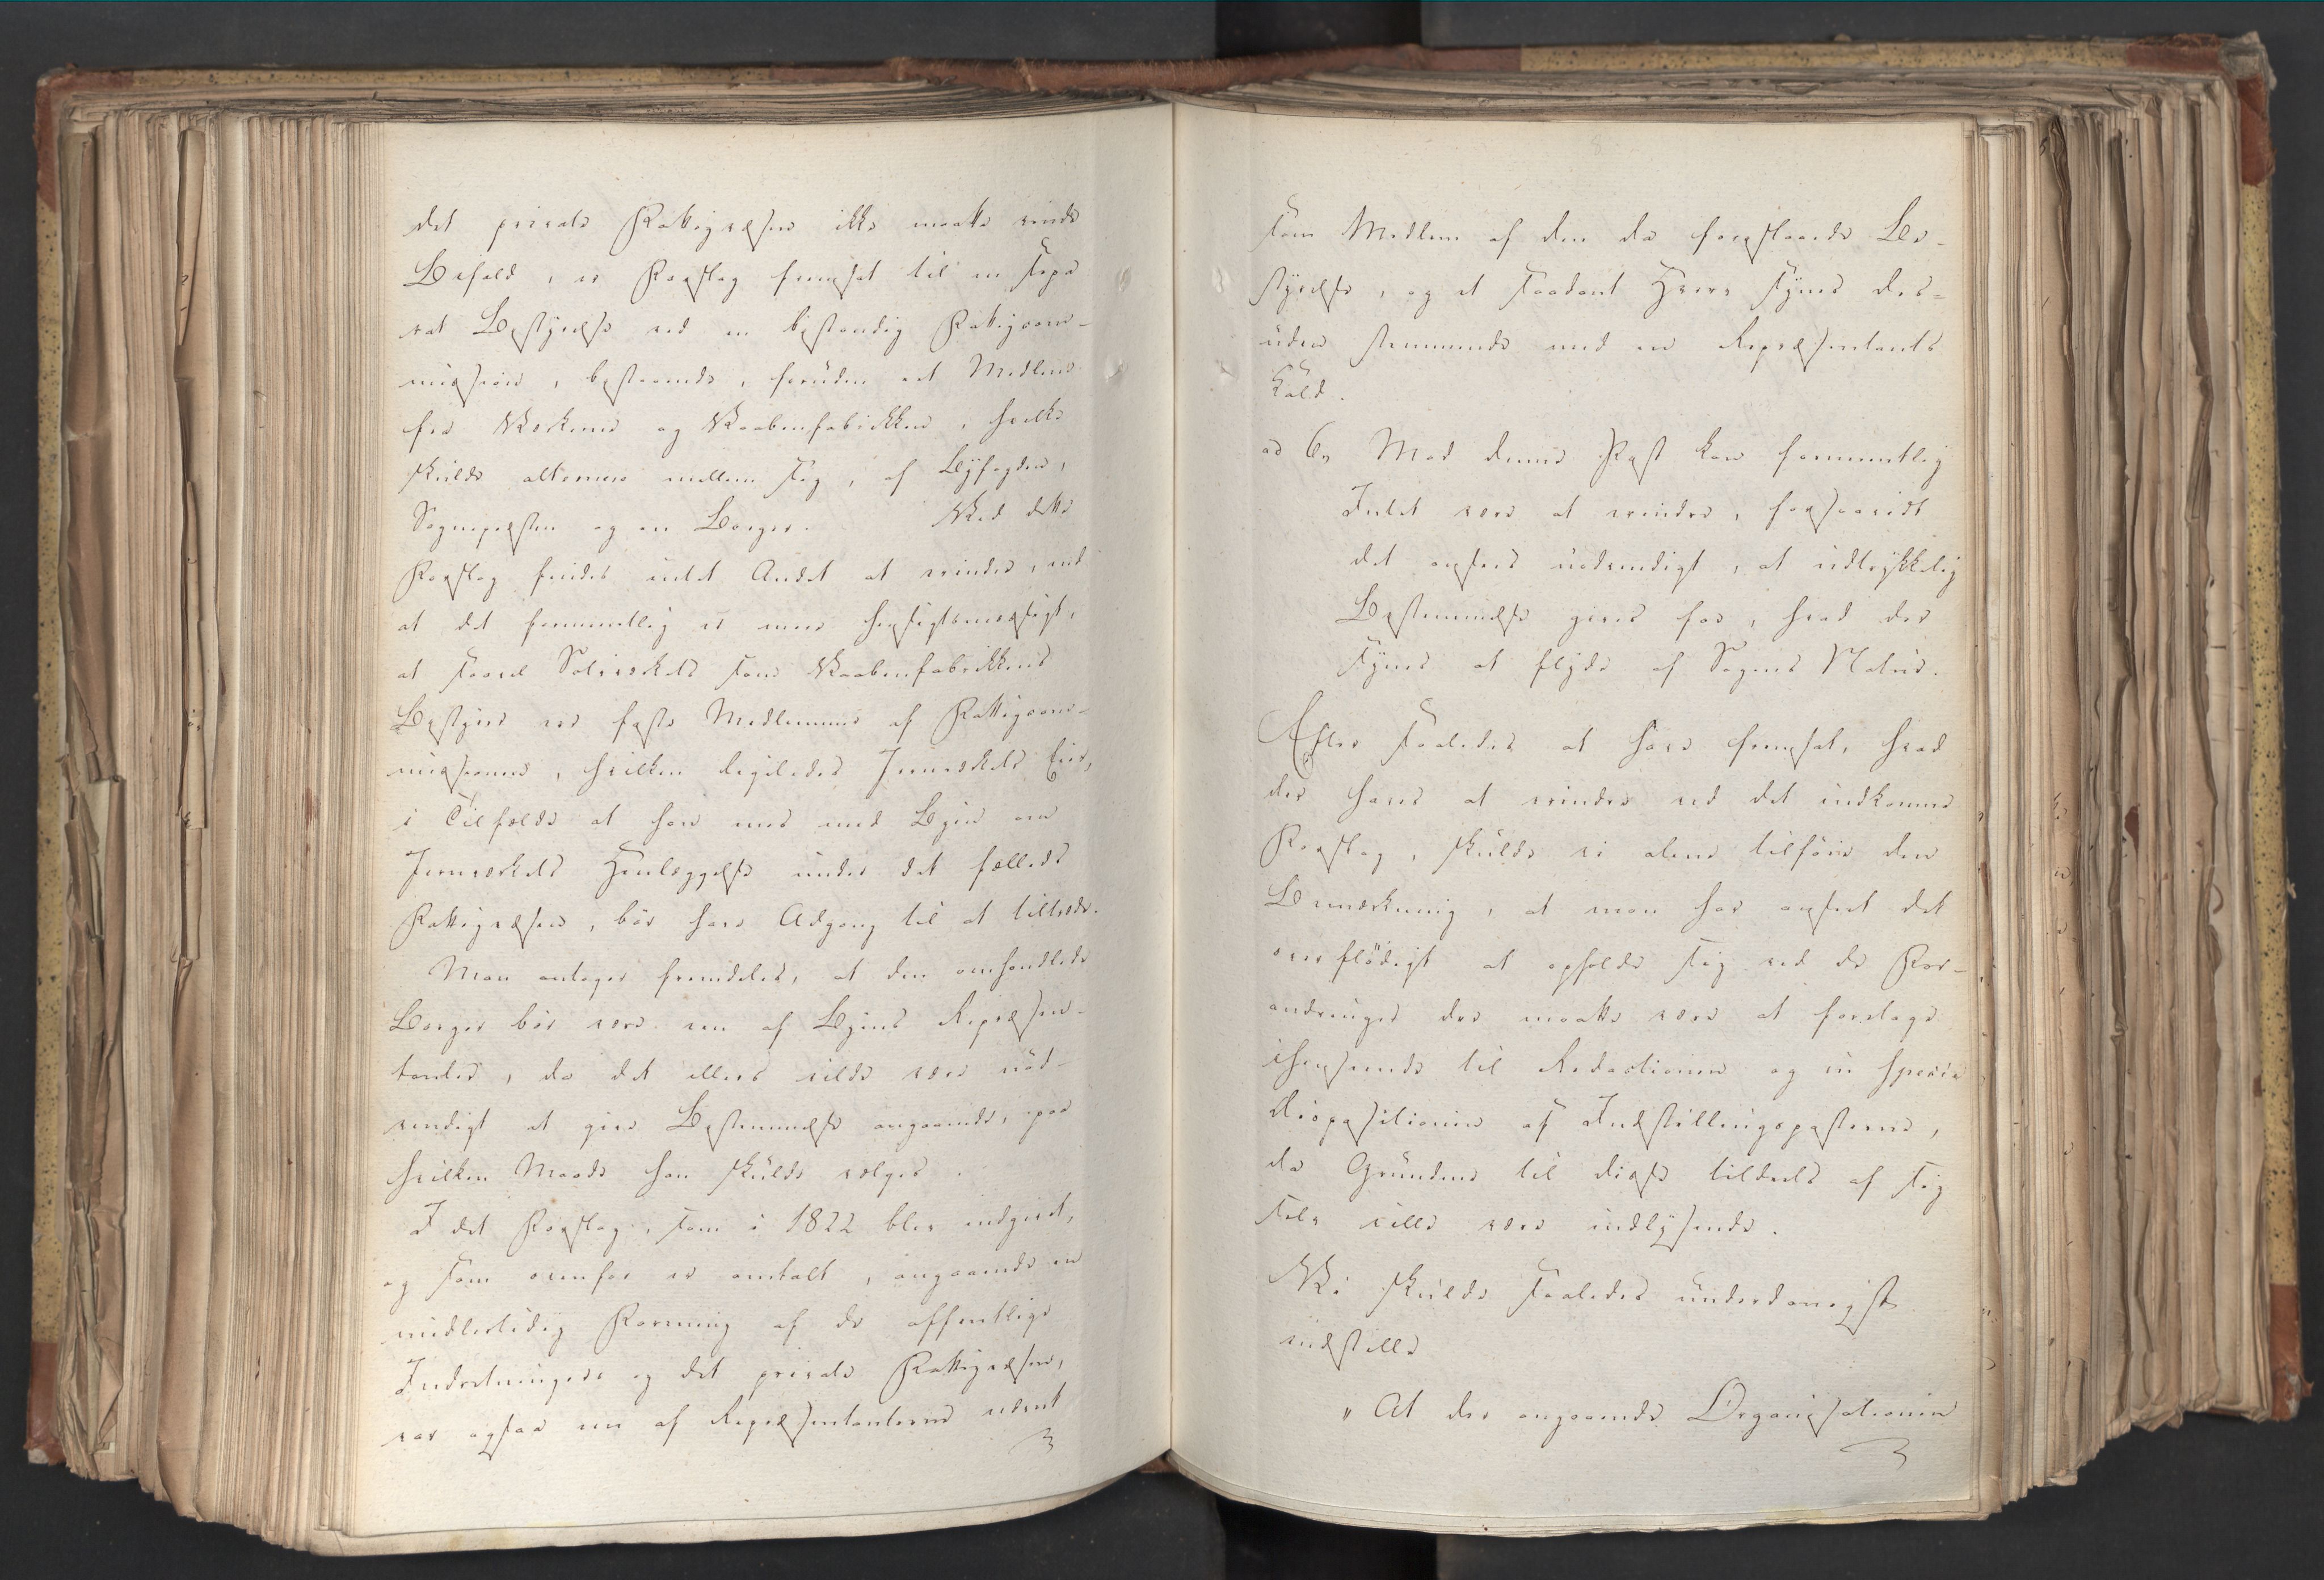 det private Fattigvæsen ikke maatte vinde
Bifald, er Forslag fremsat til en sepa
rat Bestyrelse ved en bestandig Fattigcom-
mission, bestaaende, foruden et Medlem
fra Værkerne og Vaabenfabrikken, hvilke
skulde alternere mellem sig, af Byfogden,
Sognepræsten og en Borger. Ved dette
Forslag findes intet Andet at erindre, end
at det formeentlig er meer hensigtsmæssigt,
at saavel Sølvværkets som Vaabenfabrikkens
Bestyrer ere faste Medlemmer af Fattigcom-
missionen, hvilken ligeledes Jernværkets Eier,
i Tilfælde at han enes med Byen om
Jernværkets Henlæggelse under det fælleds
Fattigvæsen, bør have Adgang til at tiltræde.
Man antager fremdeles, at den omhandlede
Borger bør være een af Byens Repræsen-
tanter, da det ellers vilde være nød-
vendigt at give Bestemmelse angaaende, paa
hvilken Maade han skulde vælges.
I det Forslag, som i 1822 blev indgivet,
og som ovenfor er omtalt, angaaende en
midlertidig Forening af de offentlige
Indretningers og det private Fattigvæsen,
var ogsaa een af Repræsentanterne nævnt
som Medlem af den da foreslaaede Be-
styrelse, og et saadant Hverv synes des-
uden stemmende med en Repræsentants
Kald.
ad 6, Mod denne Post kan formeentlig
Intet være at erindre, forsaavidt
det ansees nødvendigt, at udtrykkelig
Bestemmelse gives for, hvad der
synes at flyde af Sagens Natur.
Efter saaledes at have fremsat, hvad
der haves at erindre ved det indkomne
Forslag, skulde vi alene tilføie den
Bemærkning, at man har anseet det
overflødigt at opholde sig ved de For-
andringer der maatte være at foretage
ihenseende til Redactionen og in specie
Dispositionen af Indstillingsposterne,
da Grundene til disse tildeels af sig
selv ville være indlysende.
Vi skulde saaledes underdanigst
indstille
„ At der angaaende Organisationen